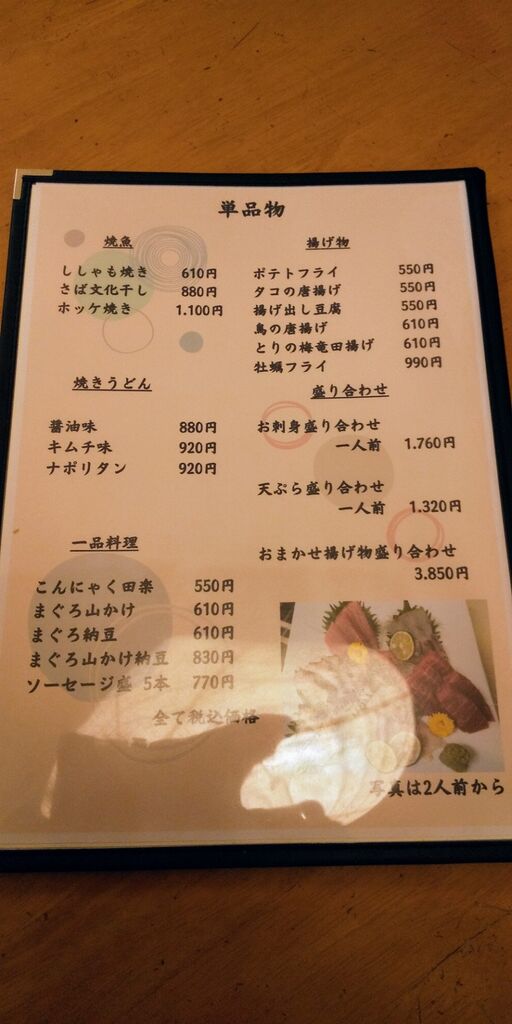 単品物
焼魚
ししゃも焼き 610円
さば文化干し 880円
ホッケ焼き 1.100円
焼きうどん
醤油味 880円
キムチ味 920円
ナポリタン 920円
一品料理
こんにゃく田楽 550円
まぐろ山かけ 610円
まぐろ納豆 610円
まぐろ山かけ納豆 830円
ソーセージ盛 5本 770円
全て税込価格
揚げ物
ポテトフライ 550円
タコの唐揚げ 550円
揚げ出し豆腐 550円
鳥の唐揚げ 610円
とりの梅竜田揚げ 610円
牡蠣フライ 990円
盛り合わせ
お刺身盛り合わせ
一人前 1.760円
天ぷら盛り合わせ
一人前 1.320円
おまかせ揚げ物盛り合わせ
3.850円
写真は2人前から